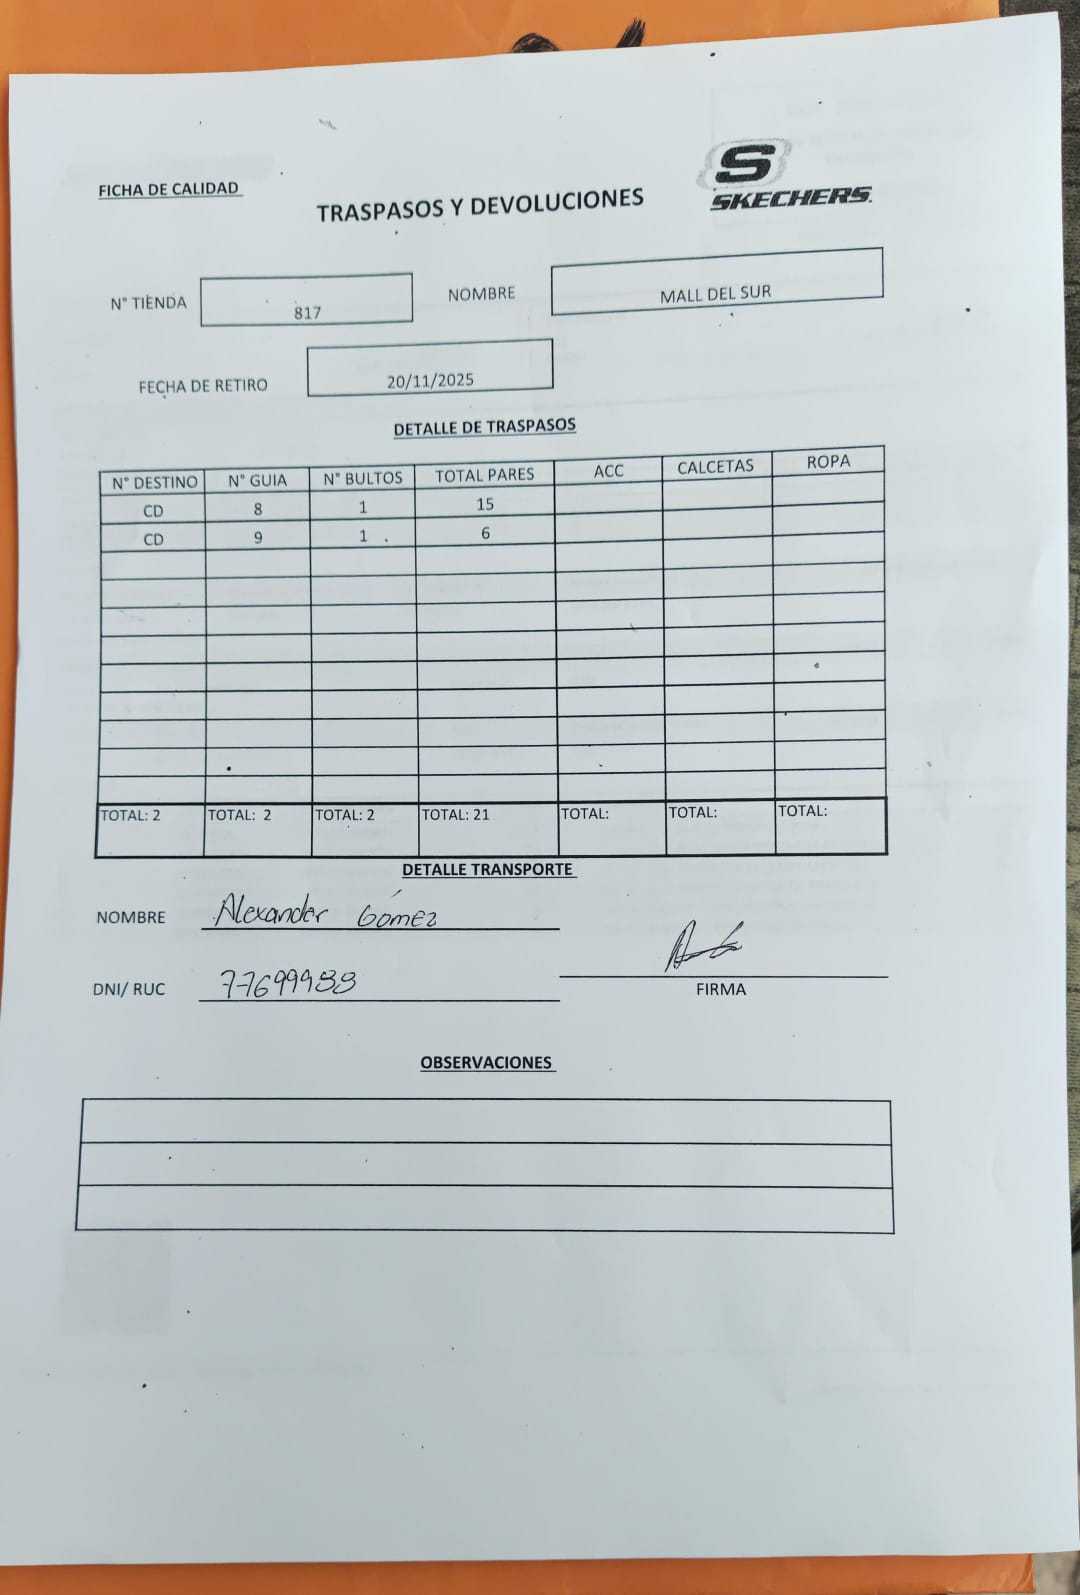 FICHA DE CALIDAD
TRASPASOS Y DEVOLUCIONES
S
SKECHERS.
N° TIENDA 817 NOMBRE MALL DEL SUR
FECHA DE RETIRO 20/11/2025
DETALLE DE TRASPASOS
N° DESTINO N° GUIA N° BULTOS TOTAL PARES ACC CALCETAS ROPA
CD 8 1 15
CD 9 1 6
TOTAL: 2 TOTAL: 2 TOTAL: 2 TOTAL: 21 TOTAL: TOTAL: TOTAL:
DETALLE TRANSPORTE
NOMBRE Alexander Gómez
DNI/ RUC
FIRMA
OBSERVACIONES